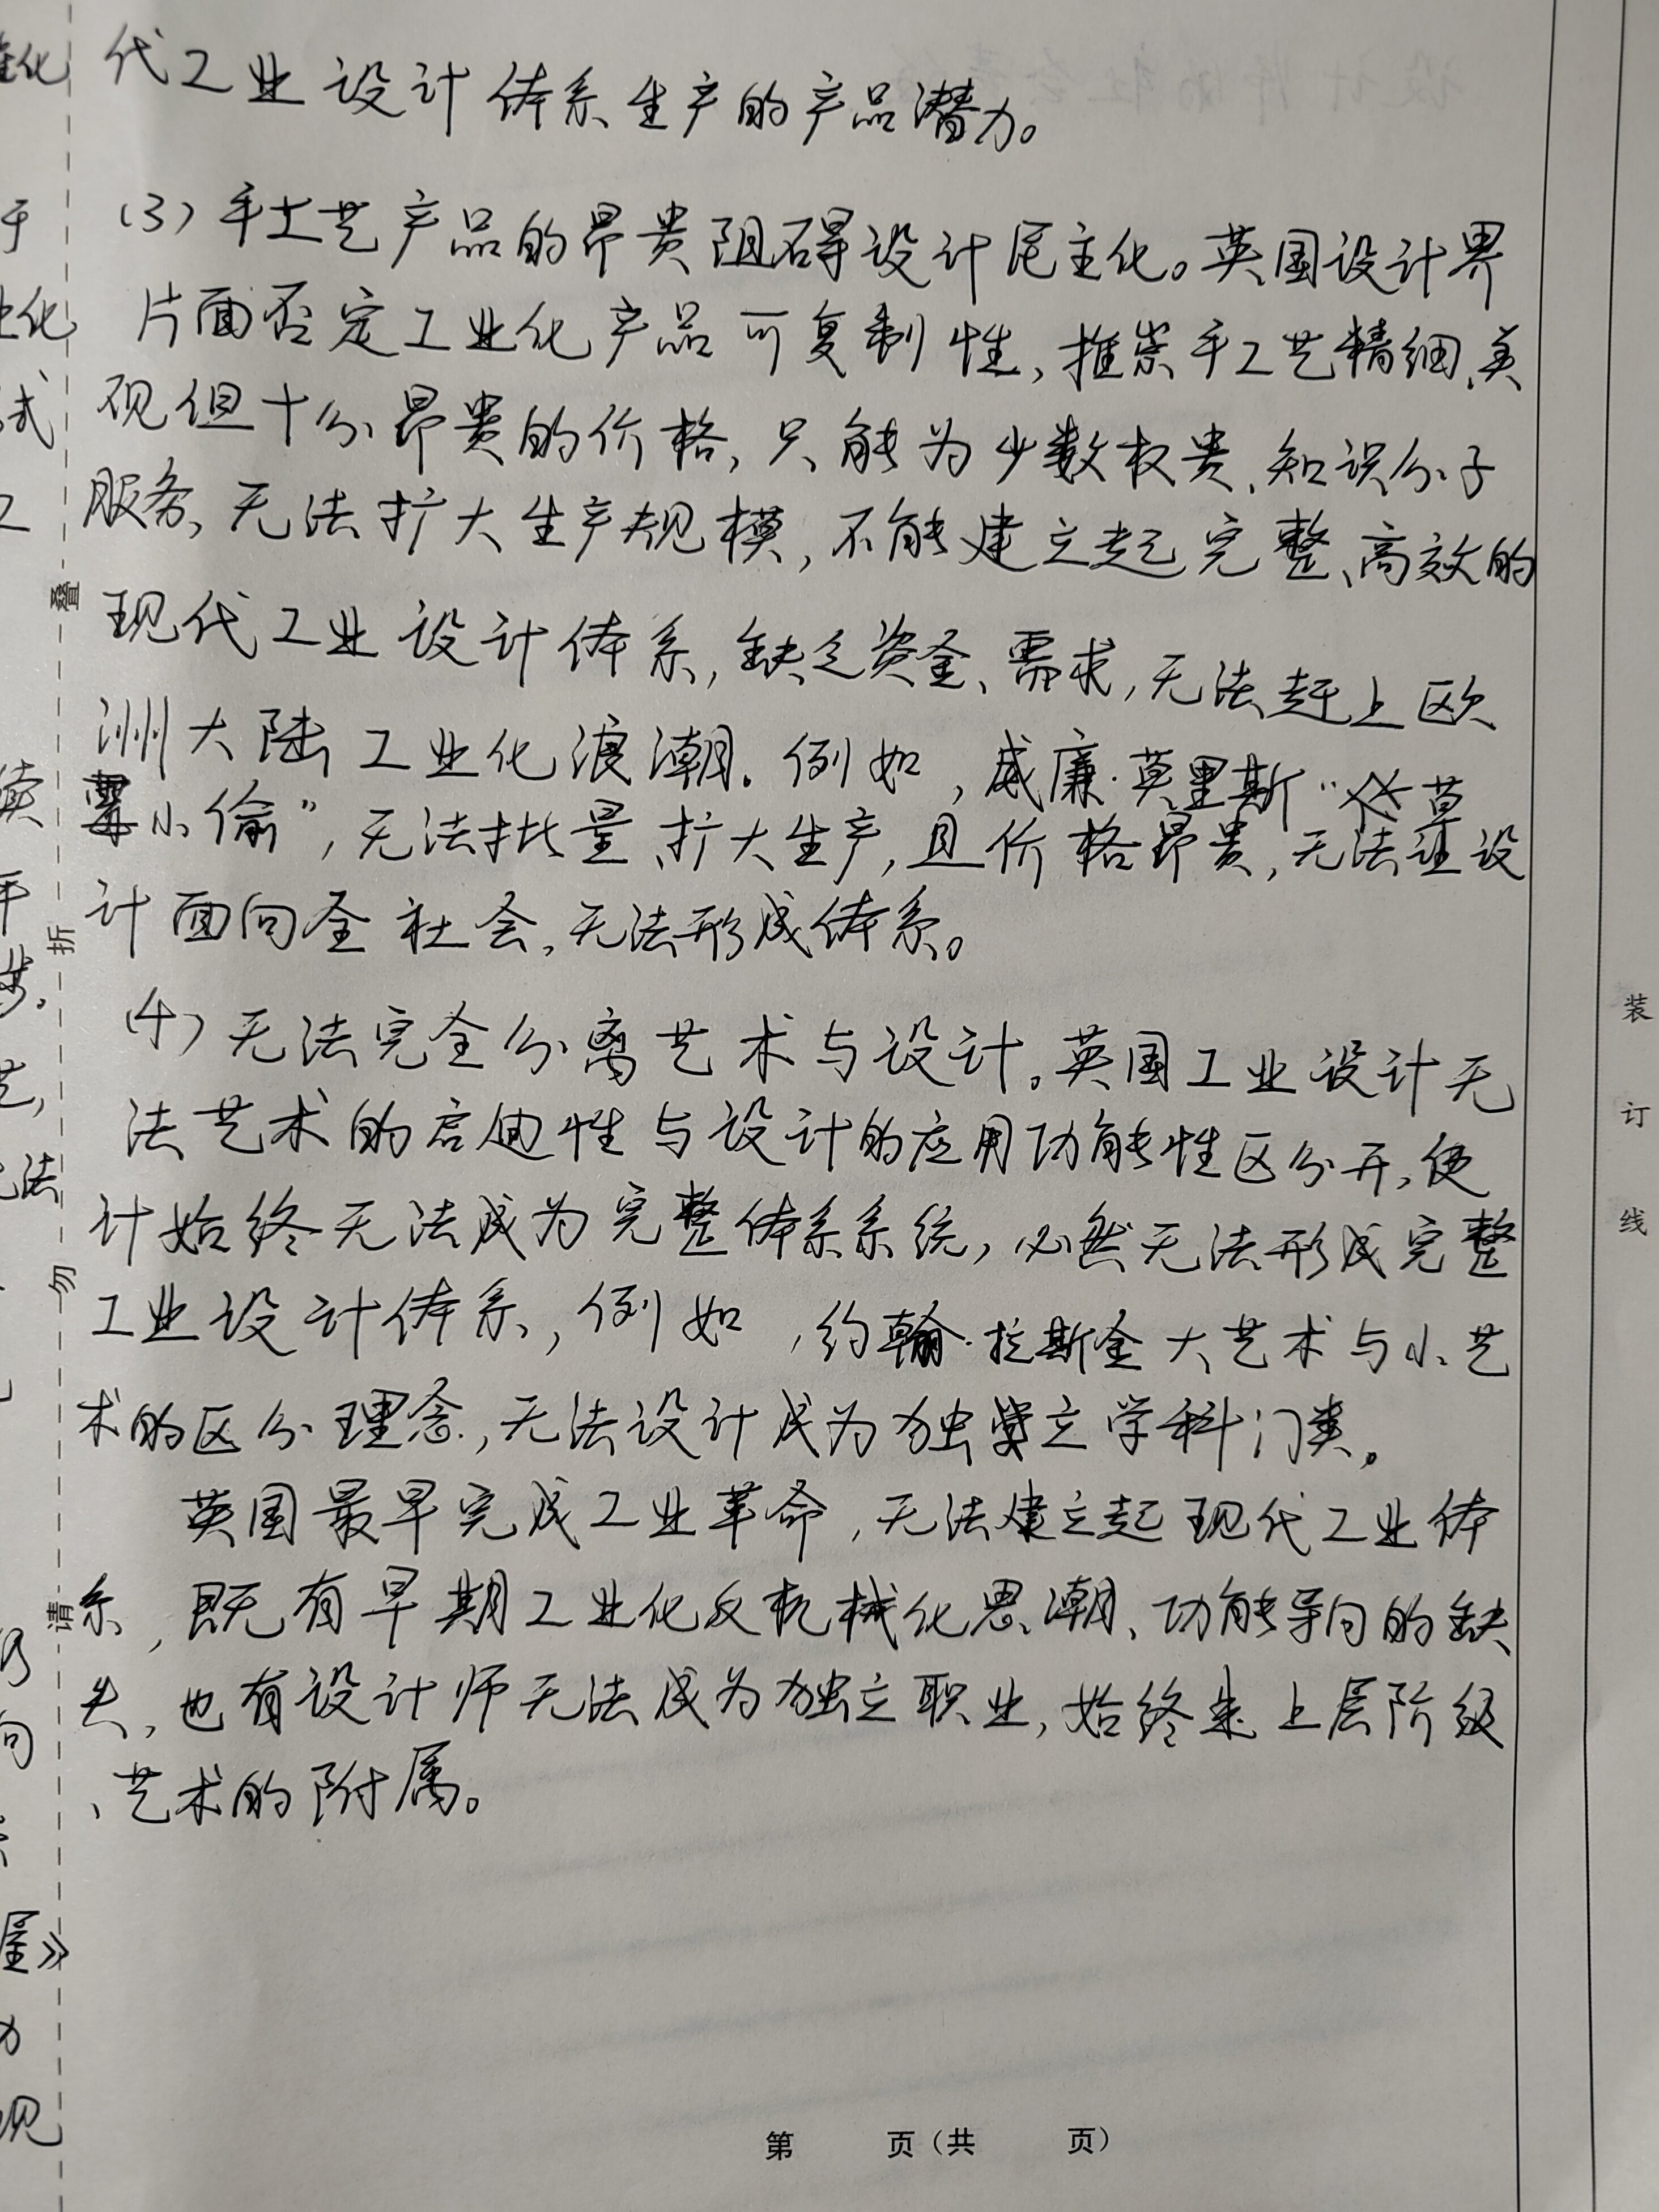 代工业设计体系生产的产品潜力。
(3)手工艺产品的昂贵阻碍设计民主化。英国设计界
片面否定工业化产品可复制性,推崇手工艺精细、美
观但十分昂贵的价格,只能为少数权贵、知识分子
服务,无法扩大生产规模,不能建立起完整、高效的
现代工业设计体系,缺乏资金、需求,无法赶上欧
洲大陆工业化浪潮。例如,威廉·莫里斯“草
莓小偷”,无法批量、扩大生产,且价格昂贵,无法让设
计面向全社会,无法形成体系。
(4)无法完全分离艺术与设计。英国工业设计无
法艺术的启迪性与设计的应用功能性区分开,使
计始终无法成为完整体系系统,必然无法形成完整
工业设计体系,例如,约翰·拉斯金大艺术与小艺
术的区分理念,无法设计成为独立学科门类。
英国最早完成工业革命,无法建立起现代工业体
系,既有早期工业化反机械化思潮、功能导向的缺
失,也有设计师无法成为独立职业,始终是上层阶级
、艺术的附属。
第 页(共 页)
叠
折
勿
请
装
订
线
准化
于
业化
式
工
续
平
步。
艺,
无法
向
屋》
力
现